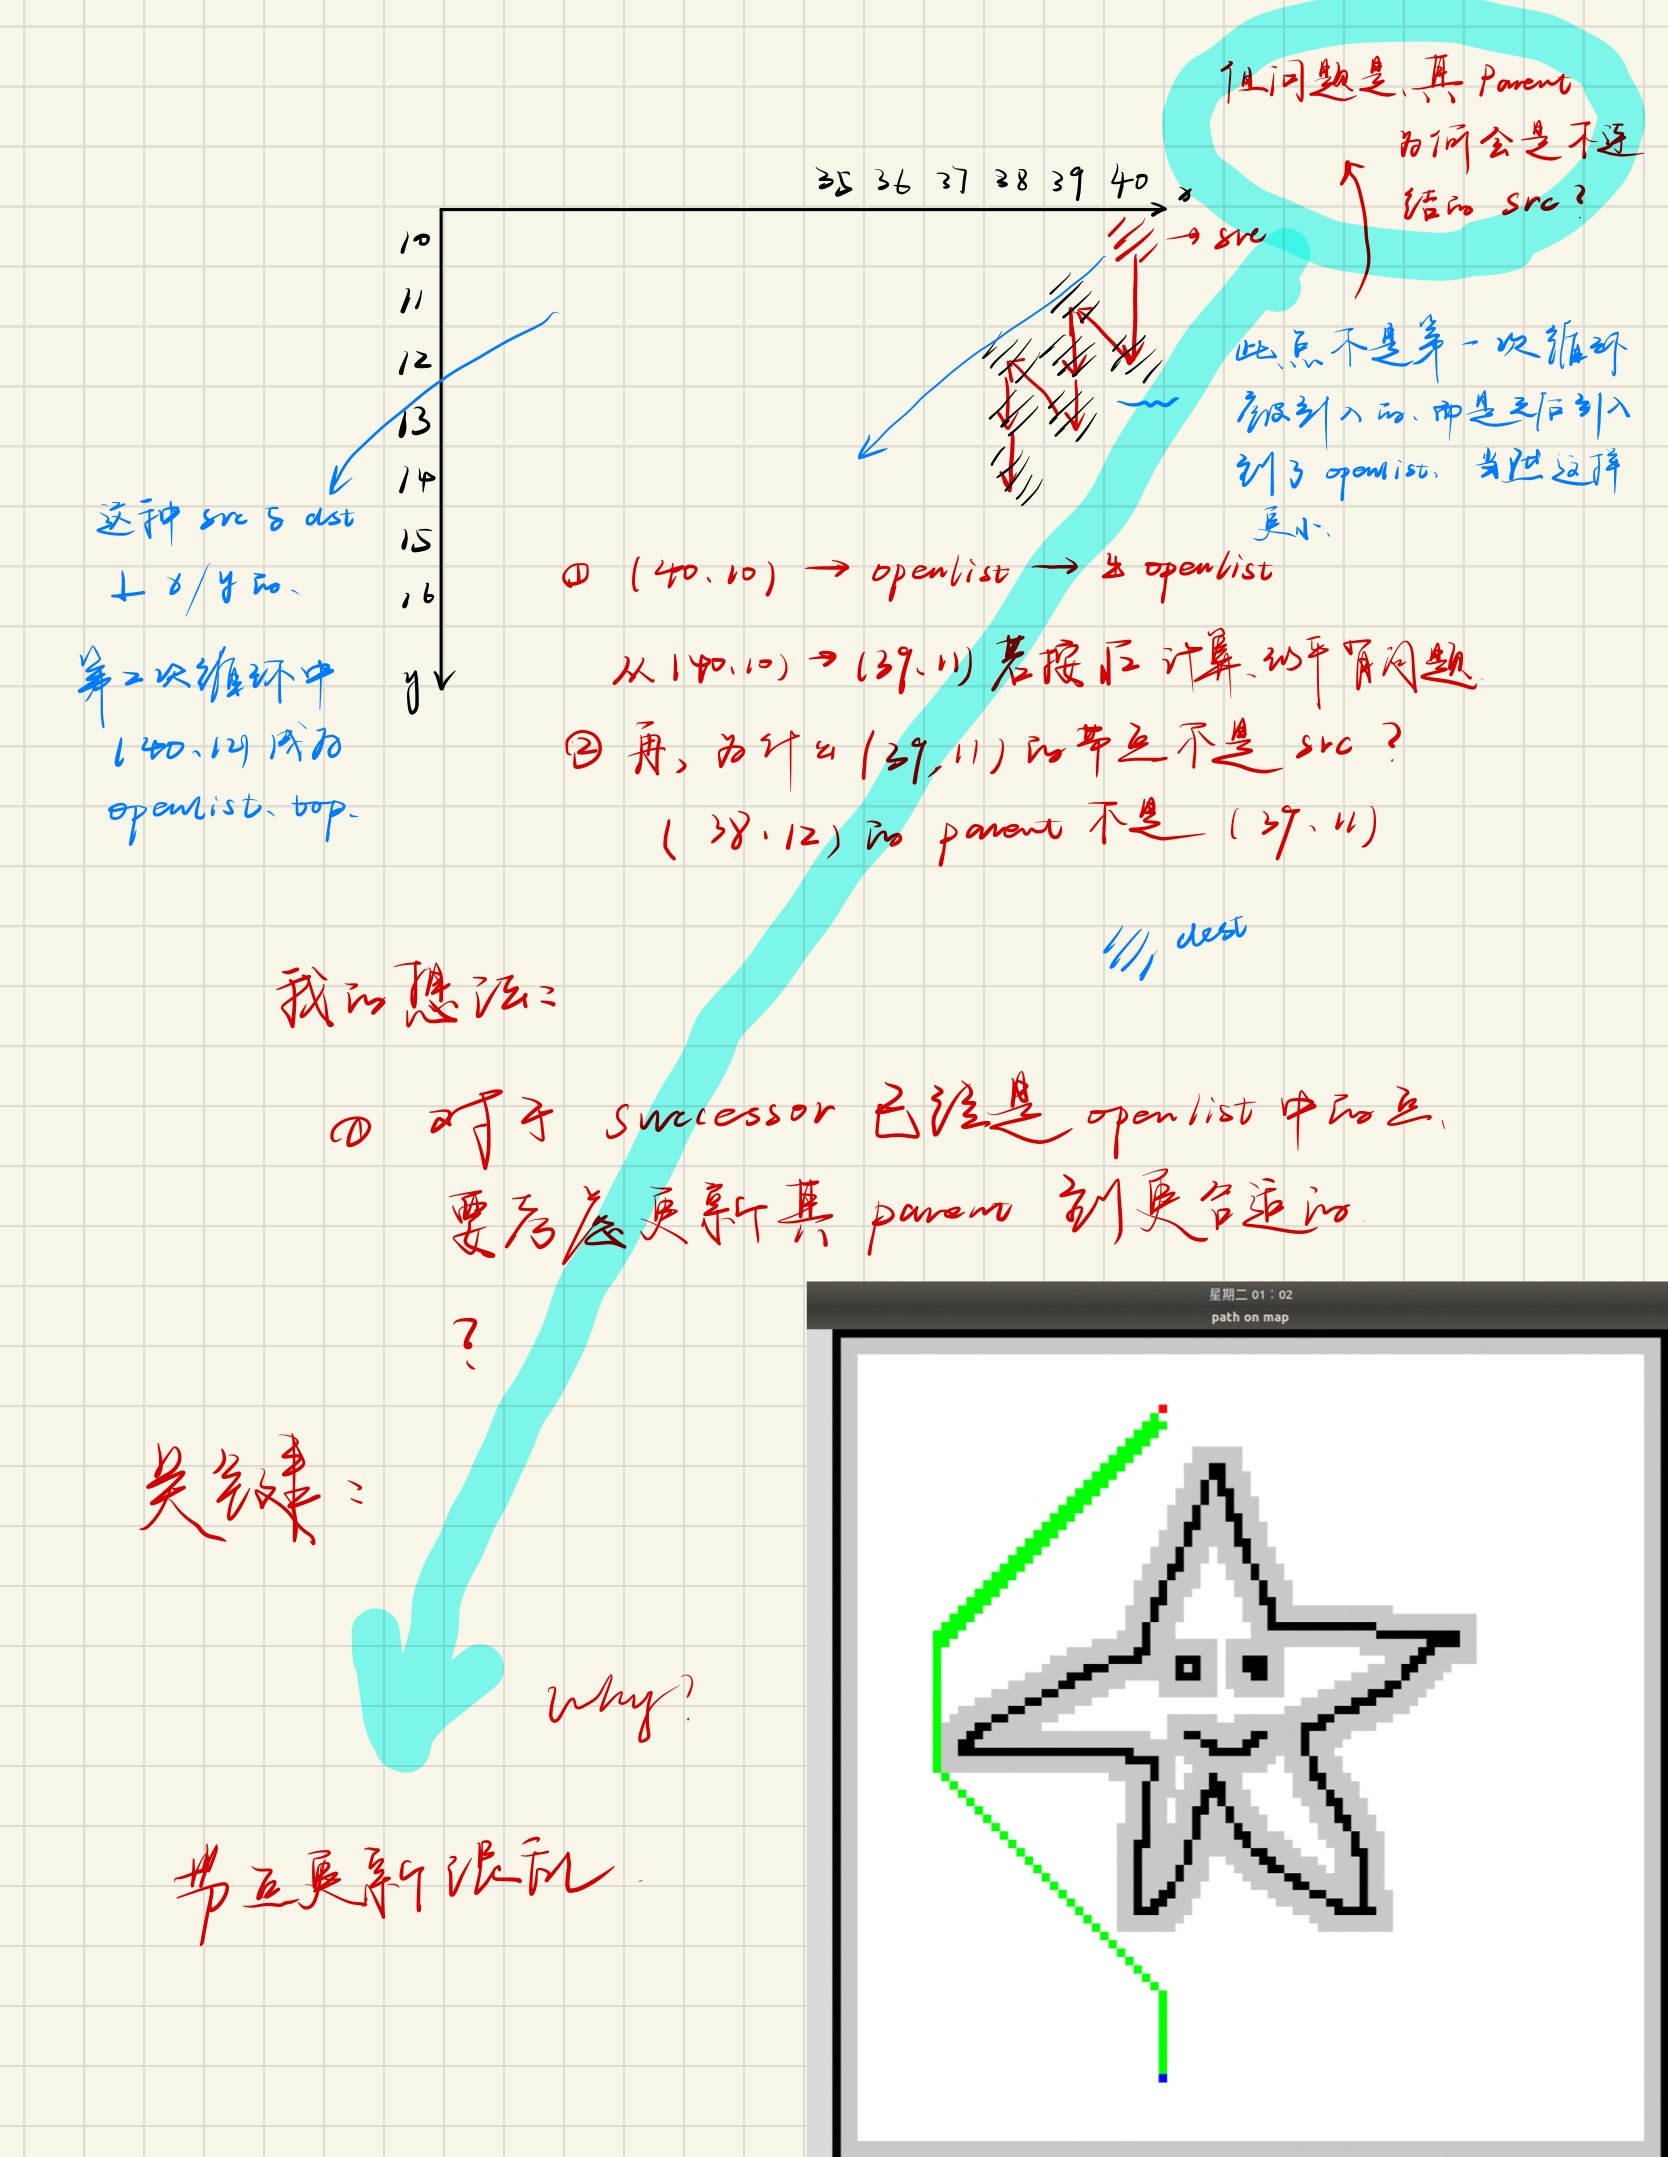 但问题是、其 Parent
为何会是不连
结的 src?
35 36 37 38 39 40 x
→ src
10
11
12
13
14
15
16
y
此点不是第一次循环
被引入的、而是之后引入
到了 openlist、当然这样
更小.
这种 src 与 dst
⊥ x/y 的、
第二次循环中
(40、12) 成为
openlist、top.
① (40、10) → openlist → 出 openlist
从 (40、10) → (39、11) 若按√2 计算、似乎有问题
② 再、为什么 (39, 11) 的节点不是 src ?
(38、12) 的 parent 不是 (39、11)
dest
我的想法:
① 对于 successor 已经是 openlist 中的点、
要考虑更新其 parent 到更合适的
?
关键:
why?
节点更新混乱.
星期二 01:02
path on map